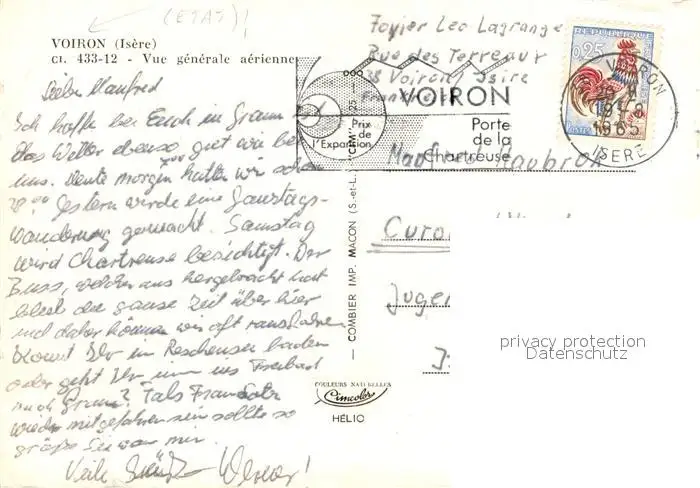 (ETAT)
VOIRON (Isère)
Cl. 433-12 - Vue générale aérienne
Lieber Manfred
Ich hoffe bei Euch in Gramm
das Wetter ebenso gut wie bei
uns. Heute morgen hatten wir schon
28.°° Gestern wurde eine Ganztags-
wanderung gemacht. Samstag
wird Chartreuse besichtigt. Der
Buss, welcher uns hergebracht hat
bleibt die ganze Zeit über hier
und daher können wir oft rausfahren.
Kommt Ihr im Reschensee baden
oder geht Ihr nur ins Freibad
nach Gramm? Falls
wieder mitgefahren sein sollte so
grüße Sie von mir.
Viele Grüße Werner!
Foyier Leo Lagrange
Rue des Terreaux
38 Voiron / Isire
Frankreich
VOIRON
Prix
de
l'Expansion
Porte
de la
Chartreuse
REPUBLIQUE
0,25
POSTES
VOIRON
1965
ISERE
Manfred
Jugen
COMBIER IMP. MACON (S.-et-L.) "CIM"
COULEURS NATURELLES
Cimcolor
HÉLIO
privacy protection
Datenschutz